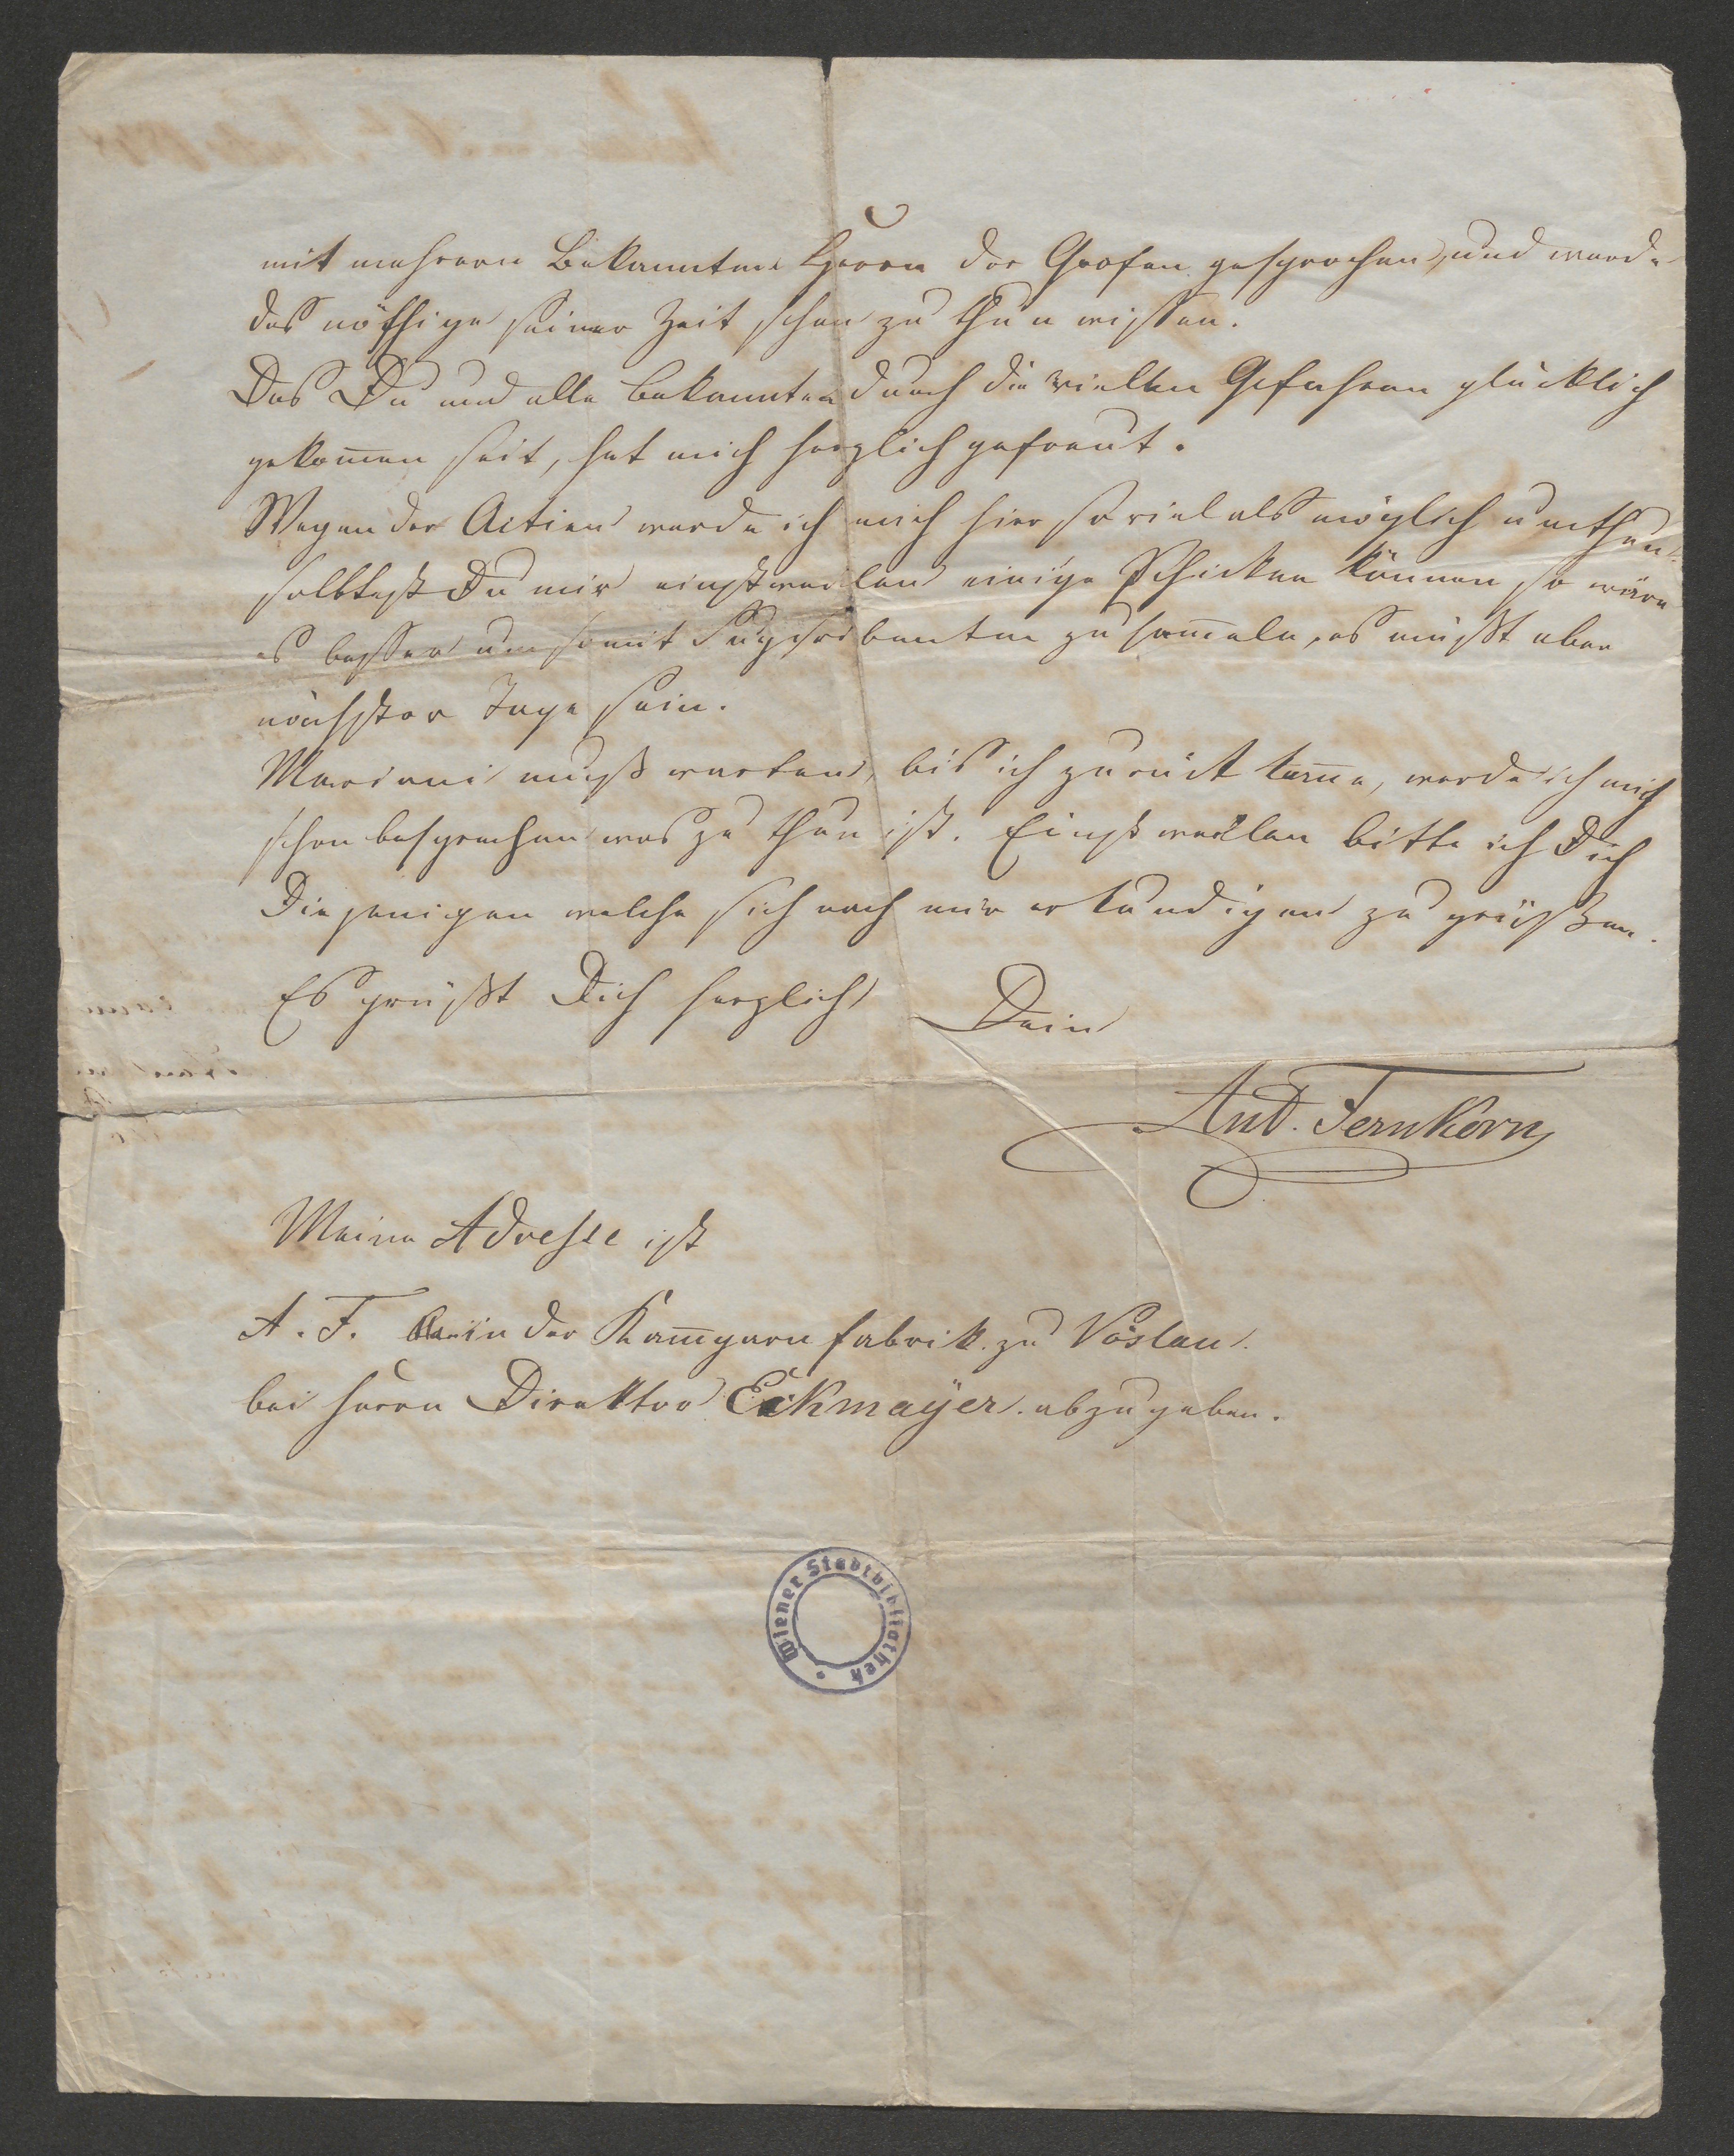 mit mehrern Bekannten Herrn der Grofen gesprochen, und werde
das nöthige seiner Zeit schon zu thun wissen.
Das Du und alle Bekannten durch die vielen Gefahren glücklich
gekom̅en seit, hat mich herzlich gefreut.
Wegen der Actien werde ich mich hier so viel als möglich umthun.
solltest Du mir einstweilen einige Schicken können so wäre
es besser um somit Supscribenten zu sam̅eln, es müßt aber
nächster Tage sein.
Mariani muß warten, bis ich zurück kom̅e, werde ich mich
schon besprechen was zu thun ist. Einstweilen bitte ich Dich
Diejenigen welche sich nach mir erkundigen zu grüßen.
Es grüßt Dich herzlich Dein
Ant. Fernkorn
Meine Adresse ist
A. F. in der Kam̅garn fabrik zu Vöslau.
bei Herrn Direktor Eckmayer abzugeben.
Wiener Stadtbibliothek